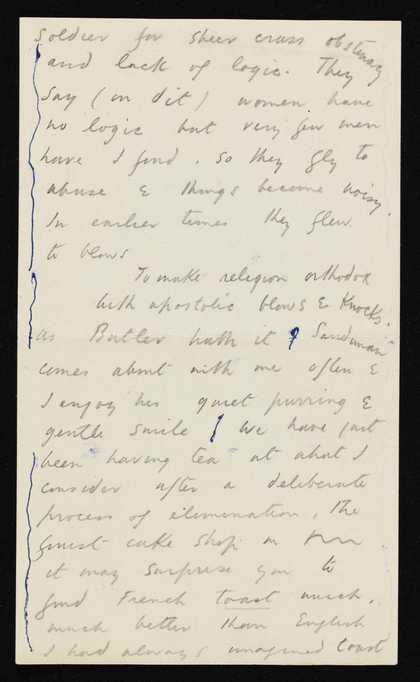 soldier for sheer crass obstinacy
and lack of logic. They
say (on dit) women have
no logic but very few men
have I find. So they fly to
abuse & things become noisy.
In earlier times they flew
to blows
To make religion orthodox
With apostolic blows & knocks.
as Butler hath it "Sandman"
comes about with me often &
I enjoy his quiet purring &
gentle smile We have just
been "having tea" at what I
consider after a deliberate
process of elimination, the
finest cake shop in
it may surprise you to
find French toast much,
much better than English
I had always imagined toast